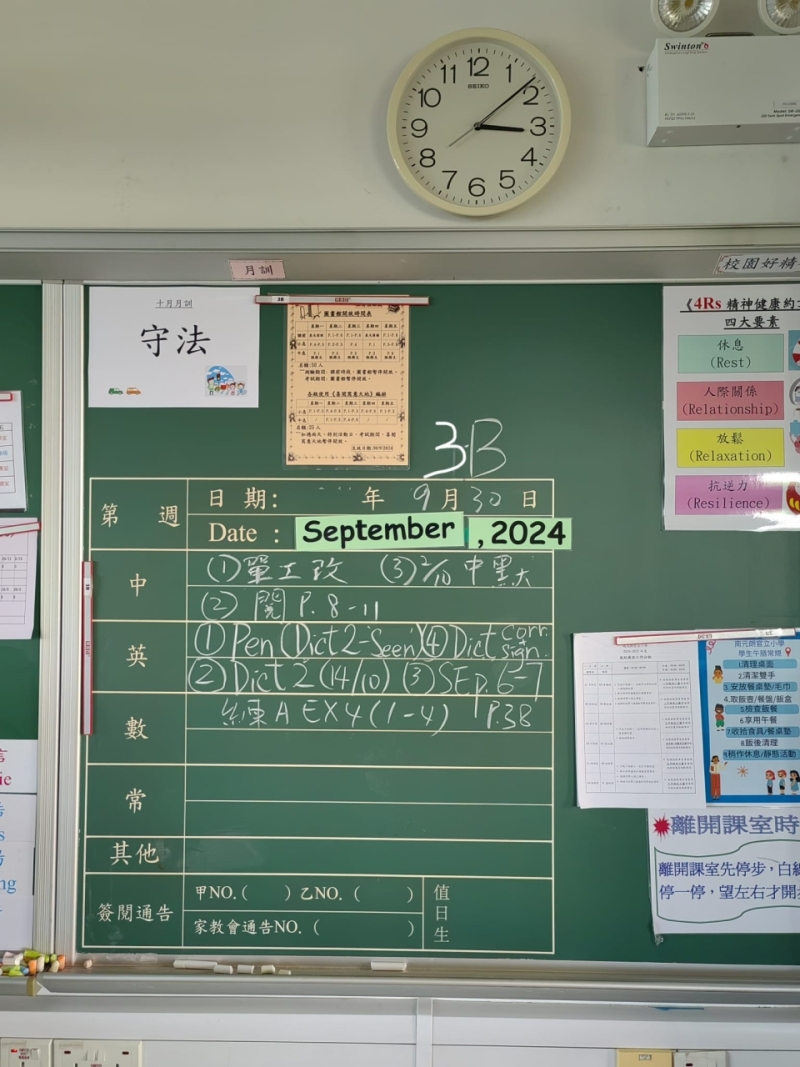 12
1
2
3
4
5
6
7
8
9
10
11
SEIKO
Swinton
月訓
校園好精
十月月訓
守法
圖書館開放時間表
3B
第 週
日 期: 年 9 月 30 日
Date : September , 2024
中
① 單工改 ③ 2/10 中默大
② 閱 P. 8-11
英
① Pen (Dict 2-Seen) ④ Dict corr. sign.
② Dict 2 (14/10) ③ SE p. 6-7
數
練 A EX 4 (1-4) P.38
常
其他
簽閱通告
甲NO.( ) 乙NO. ( )
家教會通告NO. (
)
值日生
《4Rs 精神健康約
四大要素
休息
(Rest)
人際關係
(Relationship)
放鬆
(Relaxation)
抗逆力
(Resilience)
學生午膳常規
1清理桌面
2.清潔雙手
3.安放餐桌墊/毛巾
4.取飯壺/餐盤/飯盒
5.檢查飯餐
6.享用午餐
7.收拾食具/餐桌墊
8.飯後清理
9.稍作休息/靜態活動
離開課室時
離開課室先停步，白線
停一停，望左右才開步